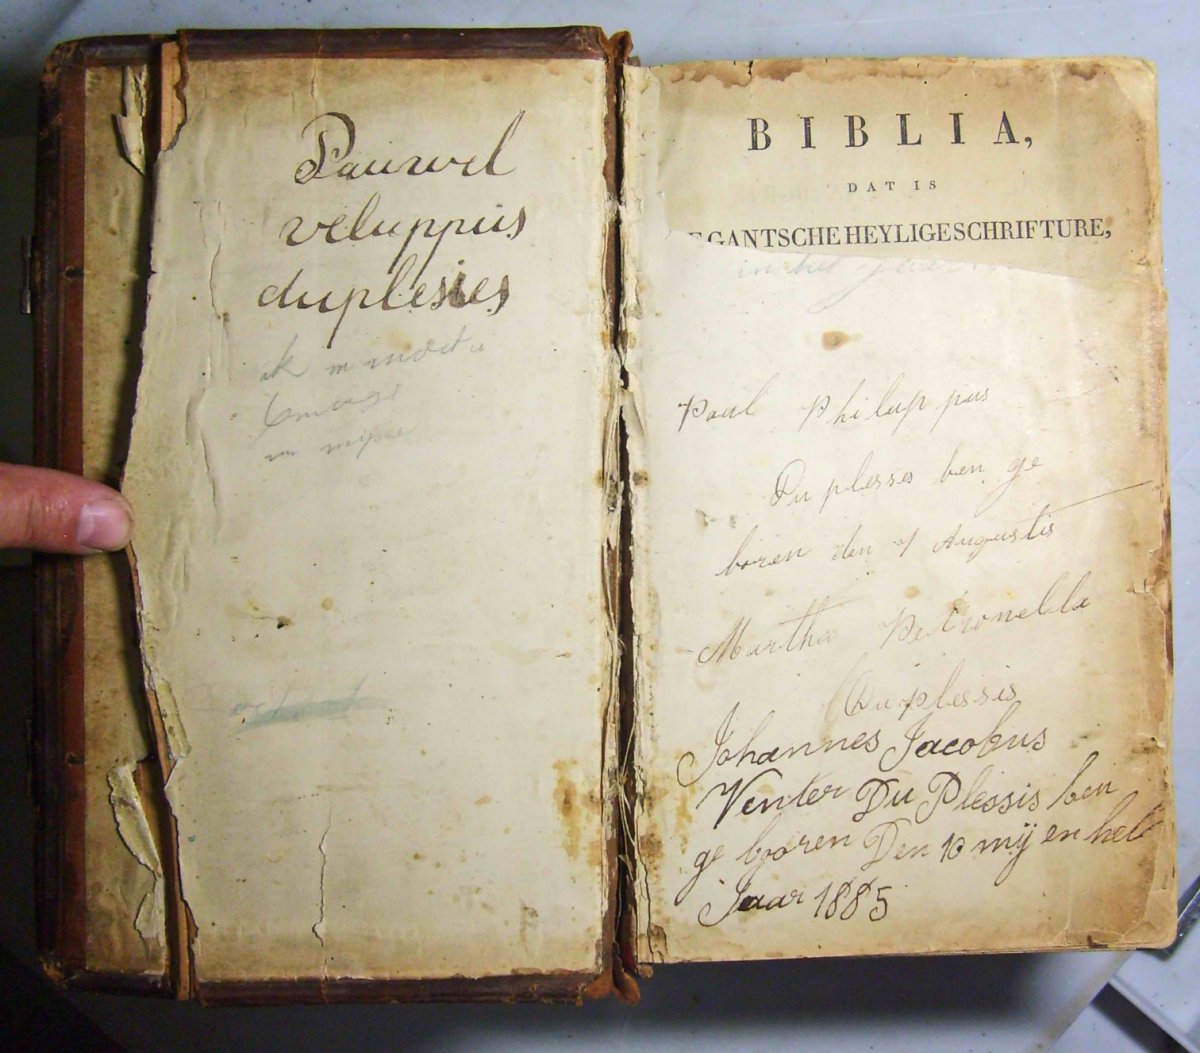 Pauwel
veluppus
duplesies
ik m moet u
m mijne
BIBLIA,
DAT IS
E GANTSCHE HEYLIGE SCHRIFTURE,
in het jaar
Paul Philuppus
Du plesses ben ge
boren den 7 Augustis
Martha Petronella
Du plessis
Johannes Jacobus
Venter Du Plessis ben
ge booren Den 10 mij en het
Jaar 1885